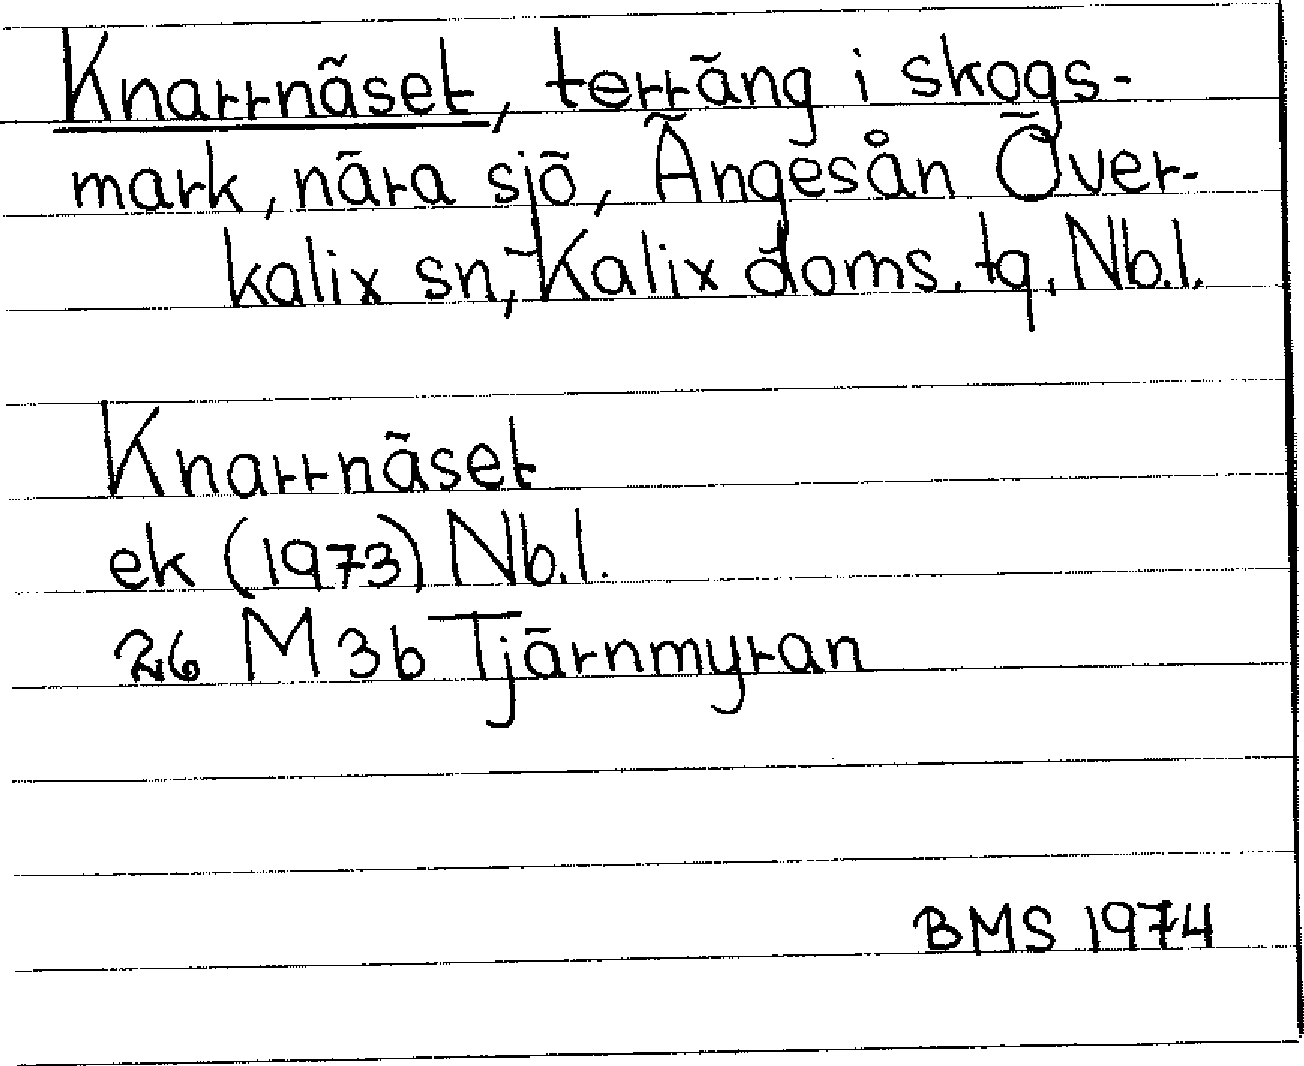 Knarrnäset, terräng i skogs-
mark, nära sjö, Ängesån Över-
kalix sn, Kalix doms. tg, Nb.l.
Knarrnäset
ek (1973) Nb.l.
26 M 3b Tjärnmyran
BMS 1974